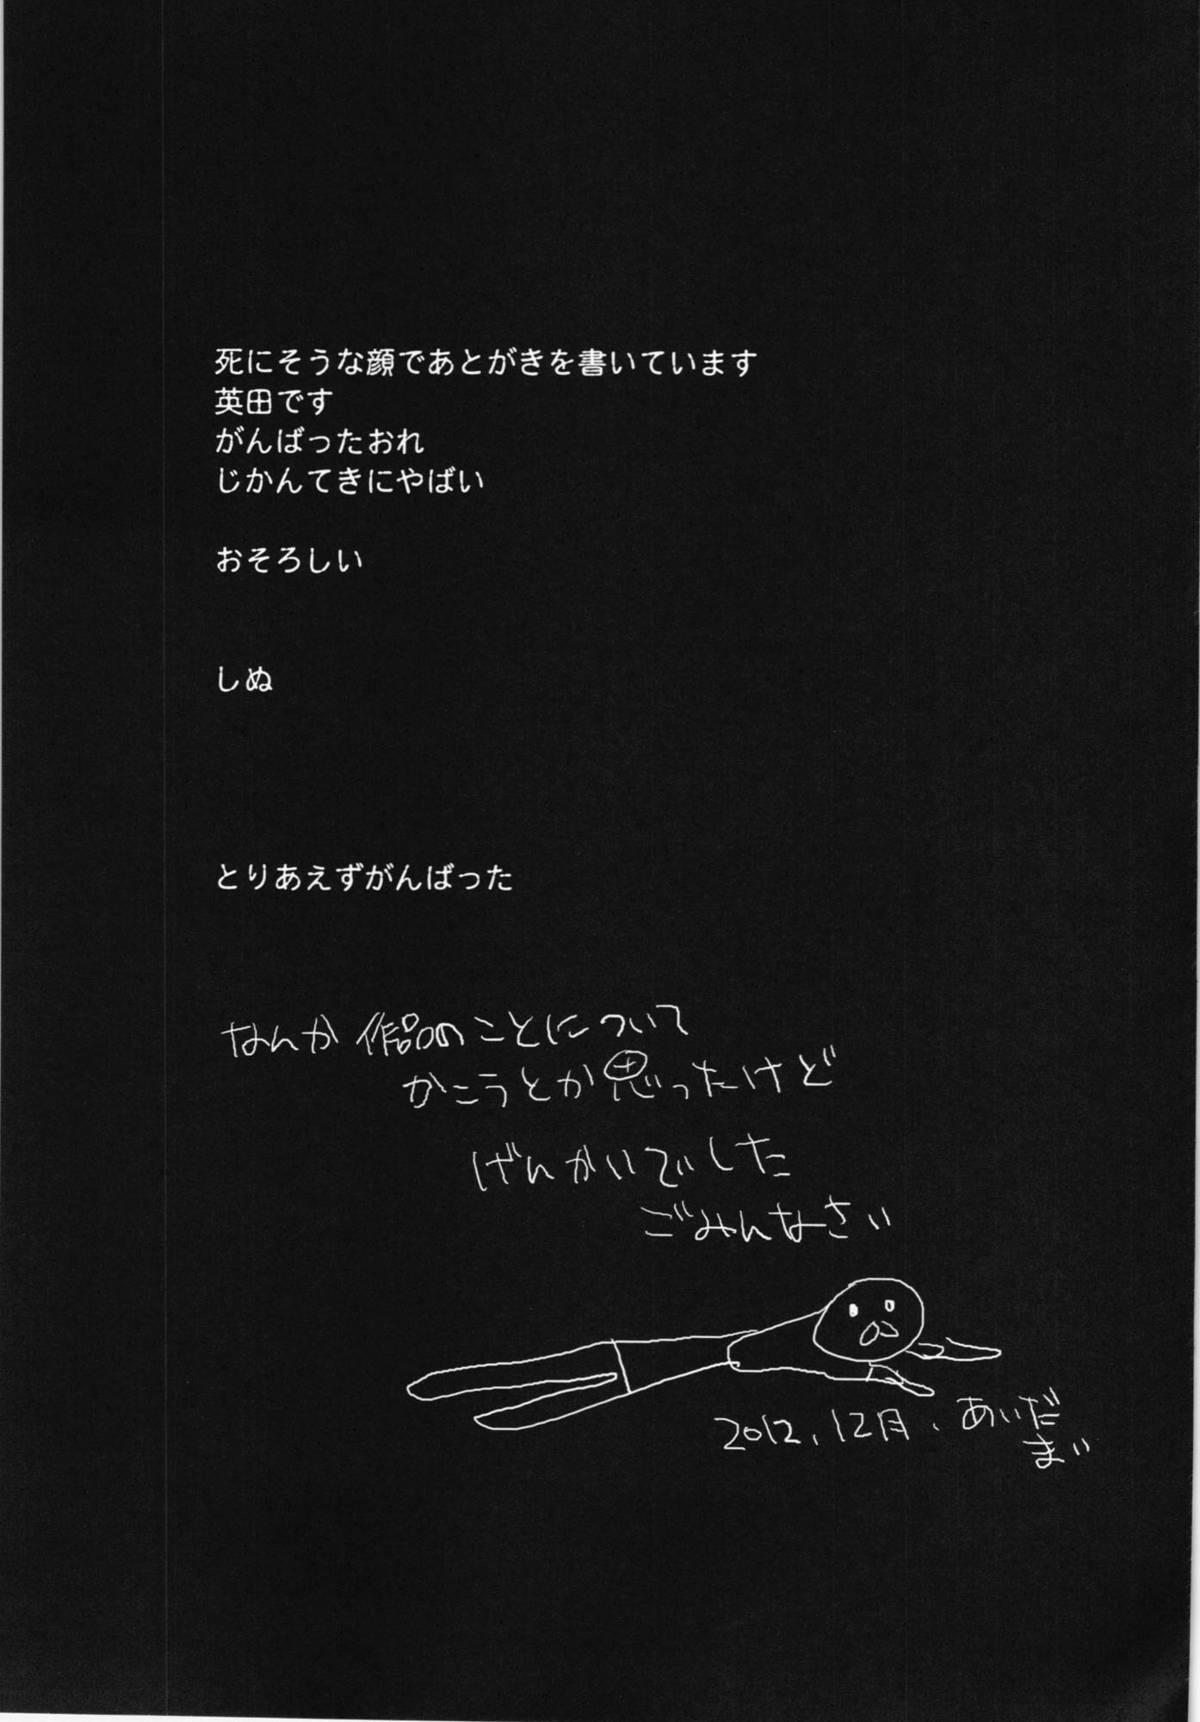 死にそうな顔であとがきを書いています
英田です
がんばったおれ
じかんてきにやばい
おそろしい
しぬ
とりあえずがんばった
なんか作品のことについて
かこうとか思ったけど
げんかいでした
ごみんなさい
2012.12月、あいだ
まい